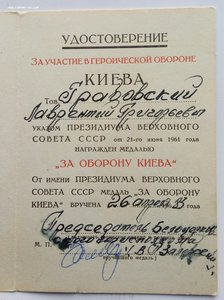 УДОСТОВЕРЕНИЕ
ЗА УЧАСТИЕ В ГЕРОИЧЕСКОЙ ОБОРОНЕ
КИЕВА
Тов. Грабовский
Лаврентий Григорьевич
УКАЗОМ ПРЕЗИДИУМА ВЕРХОВНОГО
СОВЕТА СССР от 21-го июня 1961 года
НАГРАЖДЕН МЕДАЛЬЮ
„ЗА ОБОРОНУ КИЕВА"
От имени ПРЕЗИДИУМА ВЕРХОВНОГО
СОВЕТА СССР МЕДАЛЬ „ЗА ОБОРОНУ
КИЕВА" ВРУЧЕНА 26 апреля
Председатель
М. П.
вручившего медаль)